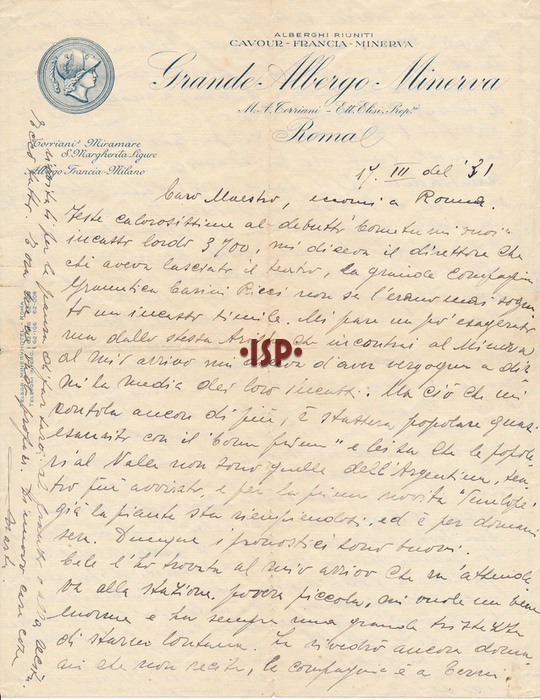 ALBERGHI RIUNITI
CAVOUR-FRANCIA-MINERVA
Grande Albergo Minerva
M.A. Torriani - Ett. Elisi, Prop.ri
Roma
Torriani's Miramare
S. Margherita Ligure
Albergo Francia-Milano
17 III del '31
Caro Maestro, eccomi a Roma.
Feste calorosissime al debutto "Come tu mi vuoi"
incasso lordo 3700, mi diceva il direttore che
chi aveva lasciato il teatro, la grande compagnia
Gramatica Casini Ricci non se l'erano mai sogna
to un incasso simile. Mi pare un po' esagerato
ma dallo stesso che incontrai al Minerva
al mio arrivo mi d'aver vergogna a dir
mi la media dei loro incassi. Ma ciò che mi
consola ancor di più, è stassera popolare quasi
esaurito con il "Come prima" e lei sa che le popola
ri al Valle non sono quelle dell'Argentina, tea
tro più avviato, e per la prima novità
già la pianta sta riempiendosi, ed è per domani
sera. Dunque i pronostici sono buoni.
Cele l'ho trovata al mio arrivo che m'attende
va alla stazione, povera piccola, mi vuole un bene
enorme e ha sempre una grande tristezza
di starmi lontana. La rivedrò ancora doma
ni che non recita, la compagnia è a Terni
ISP